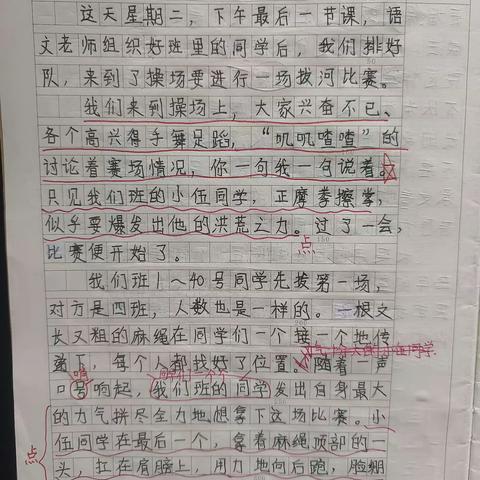 这天星期二，下午最后一节课，语
文老师组织好班里的同学后，我们排好
队，来到了操场要进行一场拔河比赛。
我们来到操场上，大家兴奋不已、
各个高兴得手舞足蹈，“叽叽喳喳”的
讨论着赛场情况，你一句我一句说着。
只见我们班的小伍同学，正摩拳擦掌，
似乎要爆发出他的洪荒之力。过了一会，
点
比赛便开始了。
我们班1～40号同学先拔第一场，
对方是四班，人数也是一样的。一根文
长又粗的麻绳在同学们一个接一个地传
递下，每个人都找好了位置。随着一声
口号响起，我们班的同学发出自身最大
的力气拼尽全力地想拿下这场比赛。小
伍同学在最后一个，拿着麻绳顶部的一
点
头，扛在肩膀上，用力地向后跑，脸绷